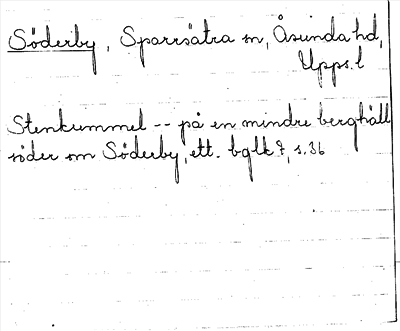 Söderby, Sparrsätra sn, Åsunda hd,
Upps. l
Stenkummel -- på en mindre berghäll
söder om Söderby, ett. bglk 7, s. 36